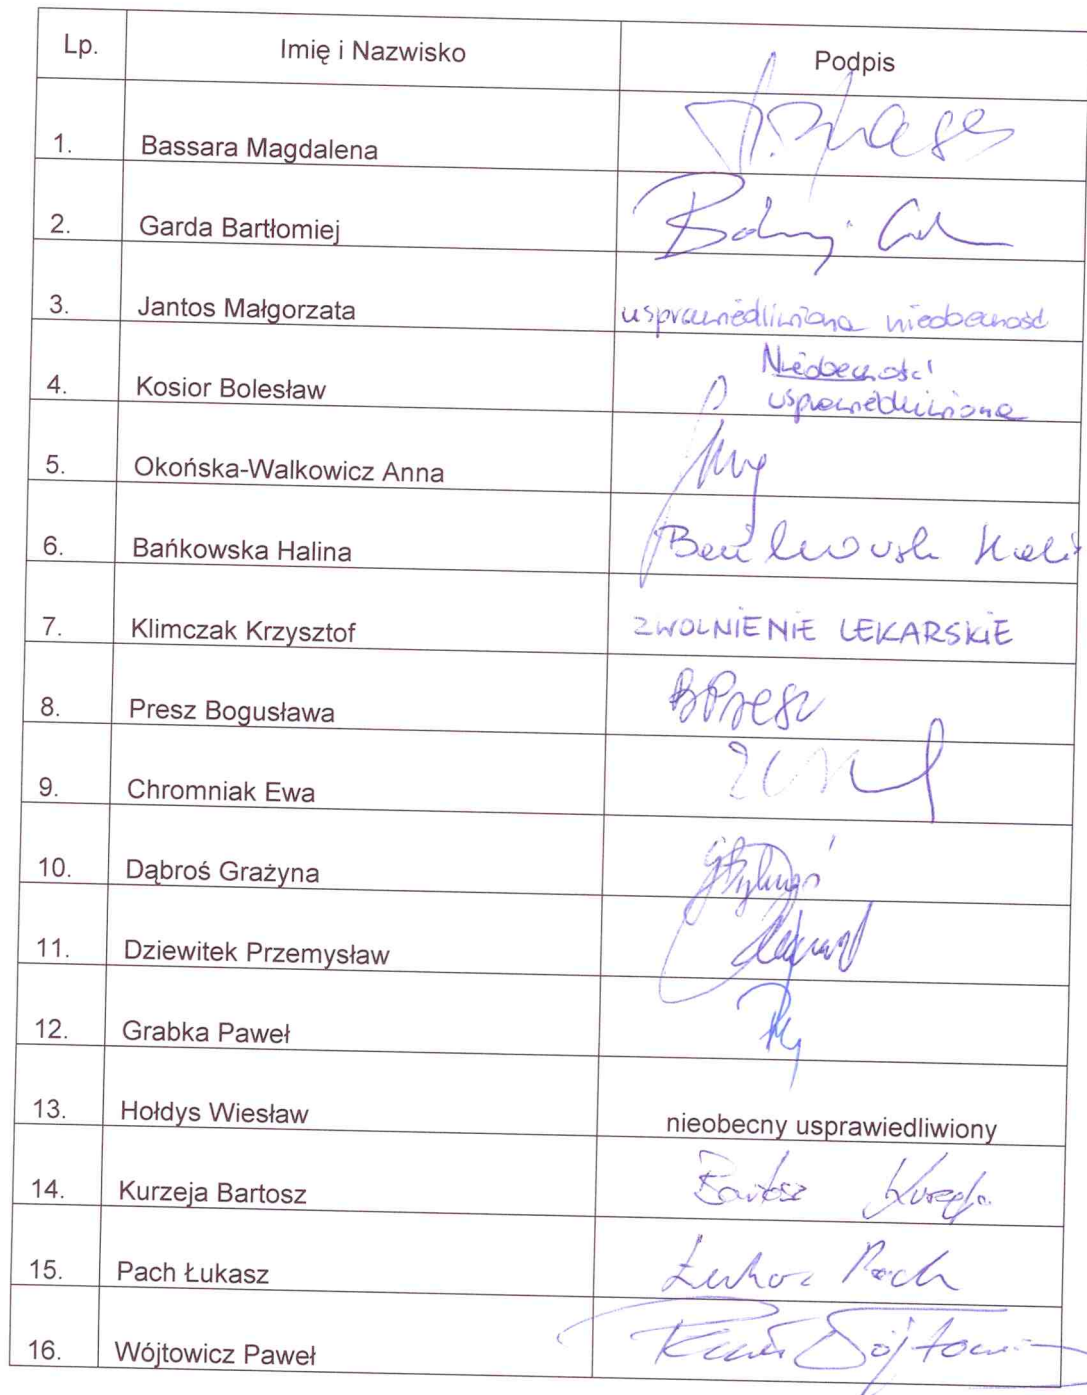 Lp. Imię i Nazwisko Podpis
1. Bassara Magdalena
2. Garda Bartłomiej
3. Jantos Małgorzata usprawiedliwiona nieobecność
4. Kosior Bolesław Nieobecność
usprawiedliwiona
5. Okońska-Walkowicz Anna
6. Bańkowska Halina
7. Klimczak Krzysztof ZWOLNIENIE LEKARSKIE
8. Presz Bogusława BPresz
9. Chromniak Ewa
10. Dąbroś Grażyna
11. Dziewitek Przemysław
12. Grabka Paweł
13. Hołdys Wiesław nieobecny usprawiedliwiony
14. Kurzeja Bartosz Bartosz Kurzeja
15. Pach Łukasz Łukasz Pach
16. Wójtowicz Paweł Paweł Wójtowicz